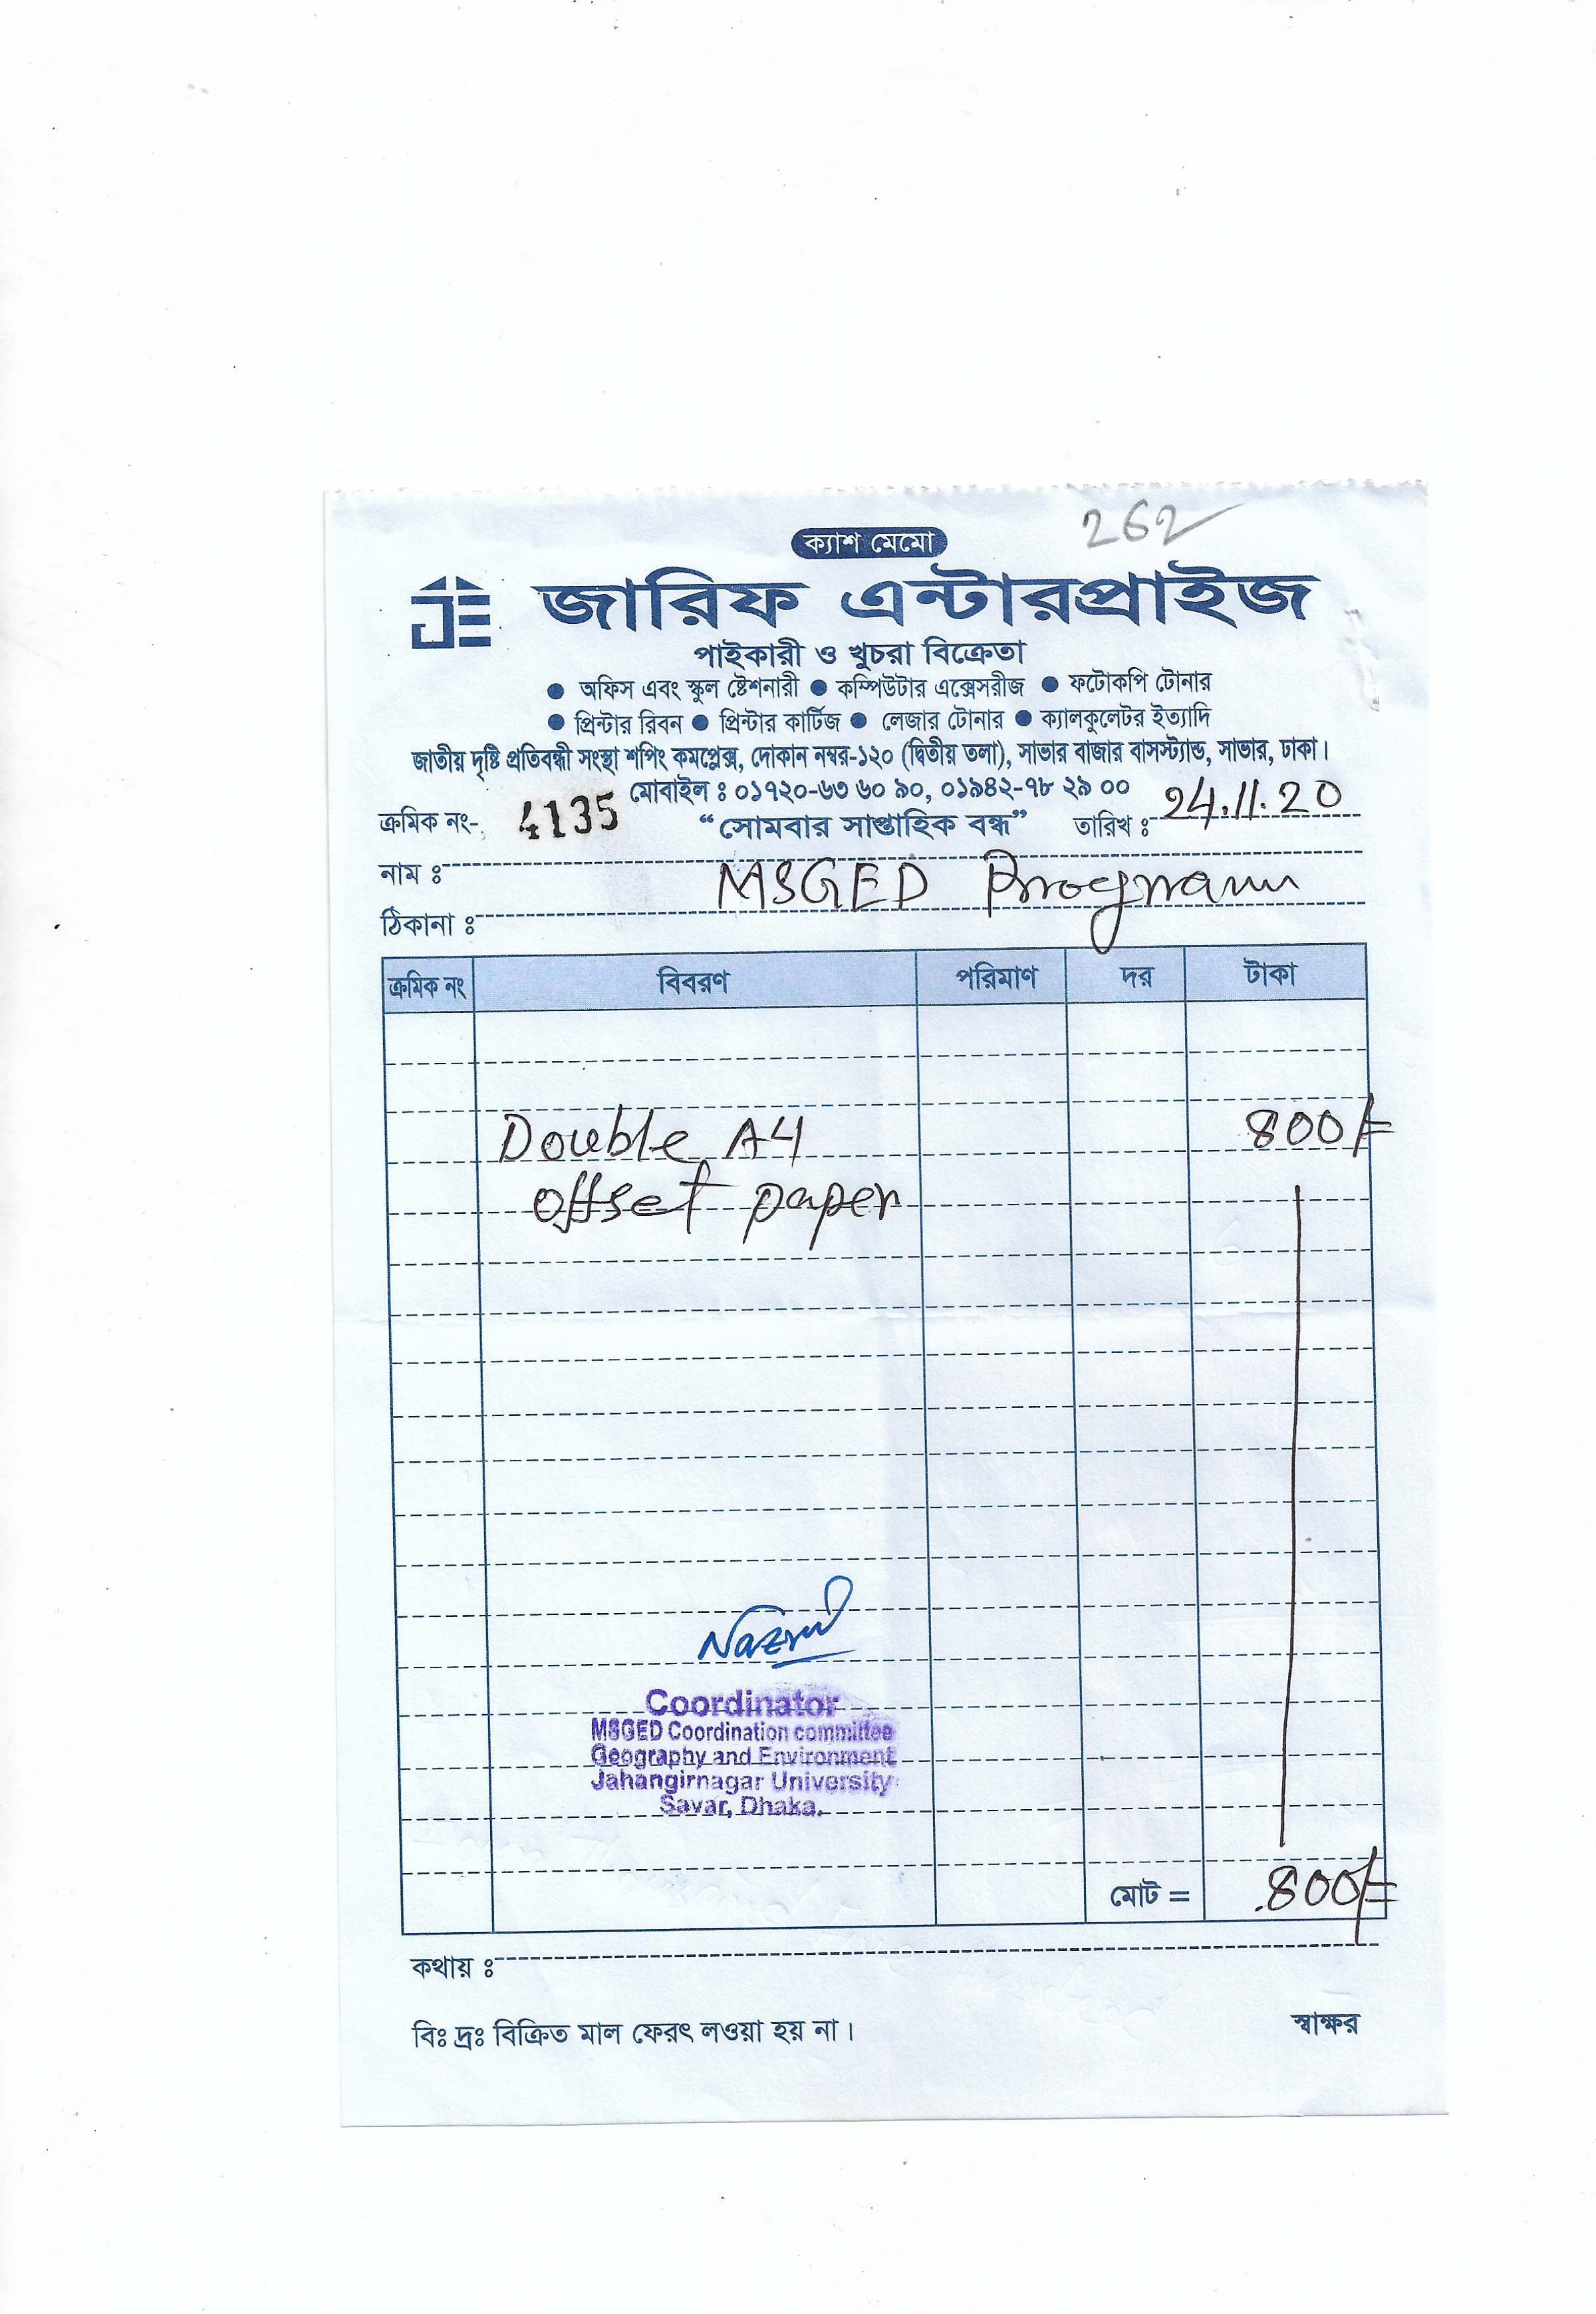 262
ক্যাশ মেমো
JE জারিফ এন্টারপ্রাইজ
পাইকারী ও খুচরা বিক্রেতা
● অফিস এবং স্কুল ষ্টেশনারী ● কম্পিউটার এক্সেসরীজ ● ফটোকপি টোনার
● প্রিন্টার রিবন ● প্রিন্টার কার্টিজ ● লেজার টোনার ● ক্যালকুলেটর ইত্যাদি
জাতীয় দৃষ্টি প্রতিবন্ধী সংস্থা শপিং কমপ্লেক্স, দোকান নম্বর-১২০ (দ্বিতীয় তলা), সাভার বাজার বাসস্ট্যান্ড, সাভার, ঢাকা।
মোবাইল ঃ ০১৭২০-৬৩ ৬০ ৯০, ০১৯৪২-৭৮ ২৯ ০০
ক্রমিক নং- 4135 “সোমবার সাপ্তাহিক বন্ধ” তারিখ ঃ 24.11.20
নাম ঃ MSGED Program
ঠিকানা ঃ
ক্রমিক নং বিবরণ পরিমাণ দর টাকা
Double A4 800/=
offset paper
Nazrul
Coordinator
MSGED Coordination committee
Geography and Environment
Jahangirnagar University
Savar, Dhaka.
মোট = 800/=
কথায় ঃ
বিঃ দ্রঃ বিক্রিত মাল ফেরৎ লওয়া হয় না। স্বাক্ষর